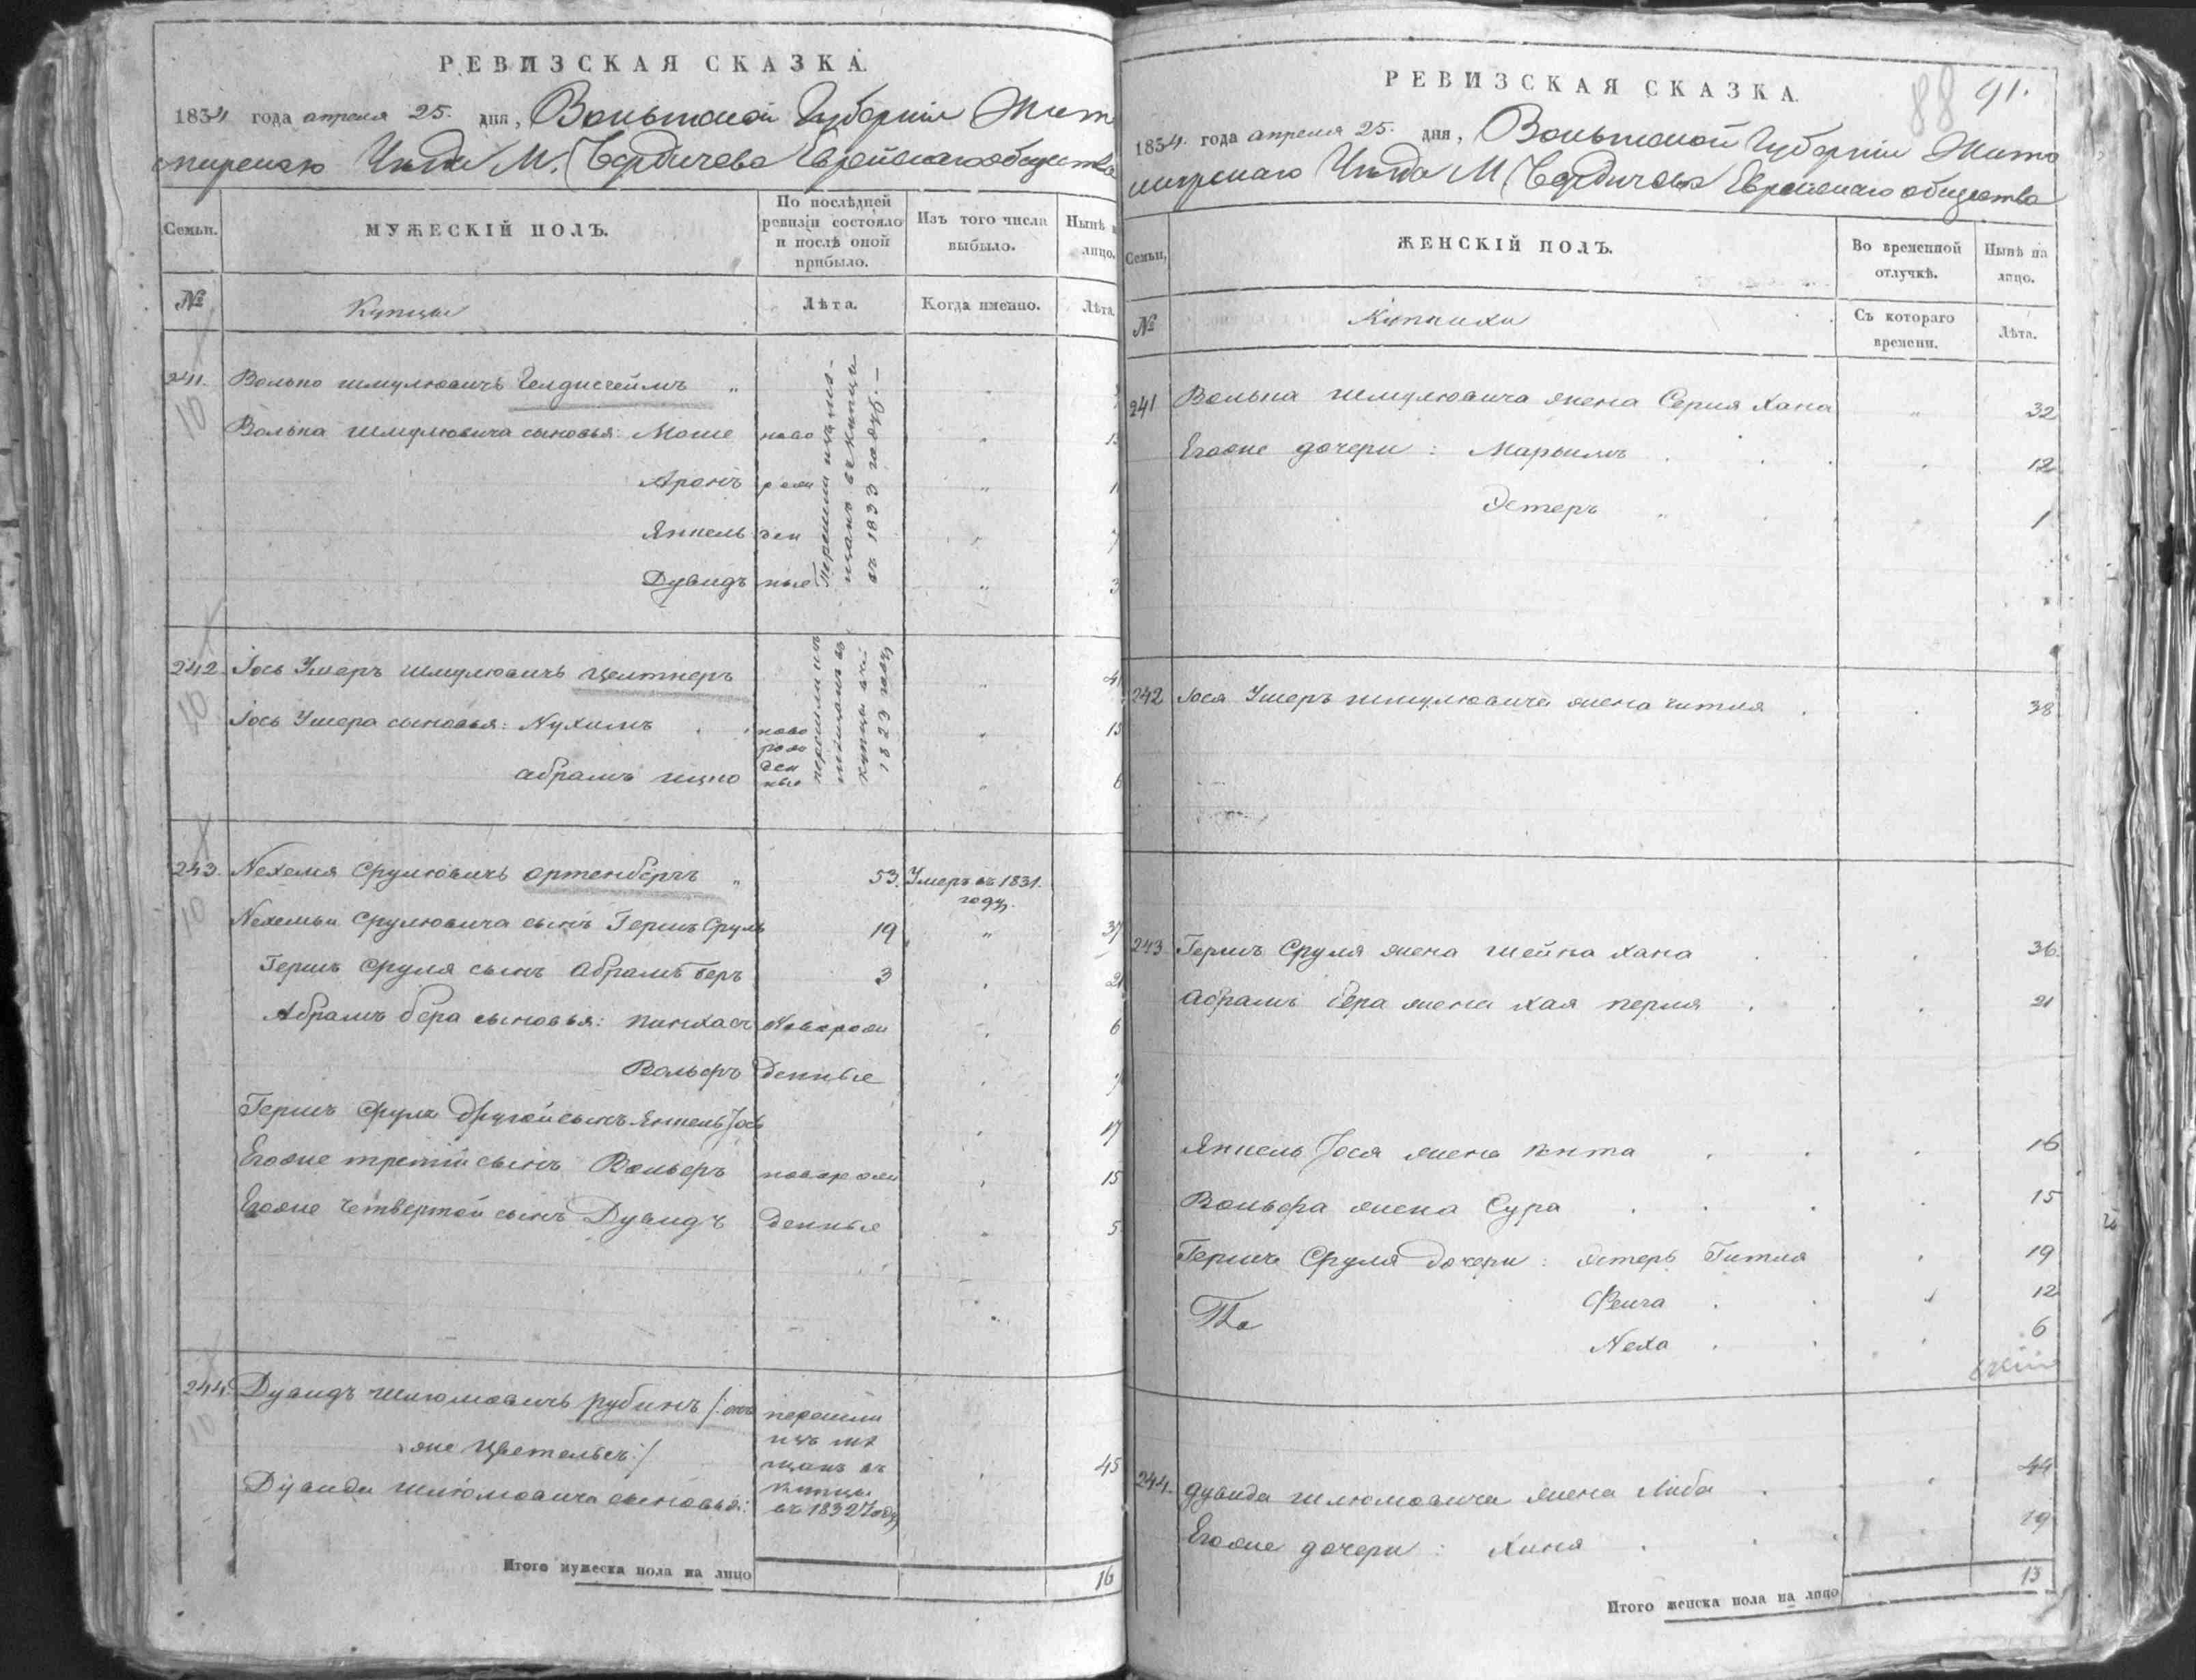 РЕВИЗСКАЯ СКАЗКА.
1834 года апреля 25. дня, Волынской Губернии Жито
мирскаго Уезда М. Бердичева Еврейскаго общества
Семьи.
МУЖЕСКІЙ ПОЛЪ.
По послѣдней ревизіи состояло и послѣ оной прибыло.
Изъ того числа выбыло.
Нынѣ на лицо.
№
Купцы
Лѣта.
Когда именно.
Лѣта.
241. Волько Шмулювичъ "
Волька Шмулювича сыновья: Моше ново "
Аронъ рож "
Янкель ден " 7
Дувидъ ные " 3
Перешли изъ ме-
щанъ въ купцы
въ 1833 году. —
10
242. Іось Ушеръ Шмулювичъ Целтнеръ " 41
Іось Ушера сыновья: Нухимъ ново " 13
рож
Абрамъ Ицко ден " 6
ные
перешли изъ
мещанъ въ
купцы въ
1829 году
10
243. Нехемя Срулювичъ Ортенбергъ " 53. Умеръ въ 1831.
году.
Нехемьи Срулювича сынъ Гершъ Сруль 19 " 37
Гершъ Сруля сынъ Абрамъ Беръ 3 " 21
Абрамъ Бера сыновья: Пинхасъ новорож " 6
Вольфъ денные "
Гершъ Сруля другой сынъ Янкель Іось " 17
Егоже третій сынъ Вольфъ новорож " 15
Егоже четвертой сынъ Дувидъ денные " 5
10
244. Дувидъ Шлюмовичъ Рубинъ /: онъ перешли
же :/ изъ ме
щанъ въ " 45
Дувида Шлюмовича сыновья: купцы
въ 1832 году
10
Итого мужеска пола на лицо 16
88 91.
РЕВИЗСКАЯ СКАЗКА.
1834 года апреля 25. дня, Волынской Губернии Жито
мирскаго Уезда М. Бердичева Еврейскаго общества
Семьи,
ЖЕНСКІЙ ПОЛЪ.
Во временной отлучкѣ.
Нынѣ на лицо.
№
Купчихи
Съ котораго времени.
Лѣта.
241 Волька Шмулювича жена Серия Хана " 32
Егоже дочери: Марьямъ " 12
Эстеръ " 1
242 Іося Ушеръ Шмулювича жена Гитля " 38
243 Гершъ Сруля жена Шейна Хана " 36.
Абрамъ Бера жена Хая Перля " 21
Янкель Іося жена " 16
Вольфа жена Сура " 15
Гершъ Сруля дочери: Эстеръ Гитля " 19
12
Неха " 6
244. Дувида Шлюмовича жена Либа " 44
Егоже дочери: Хиня 19
Итого женска пола на лицо 13